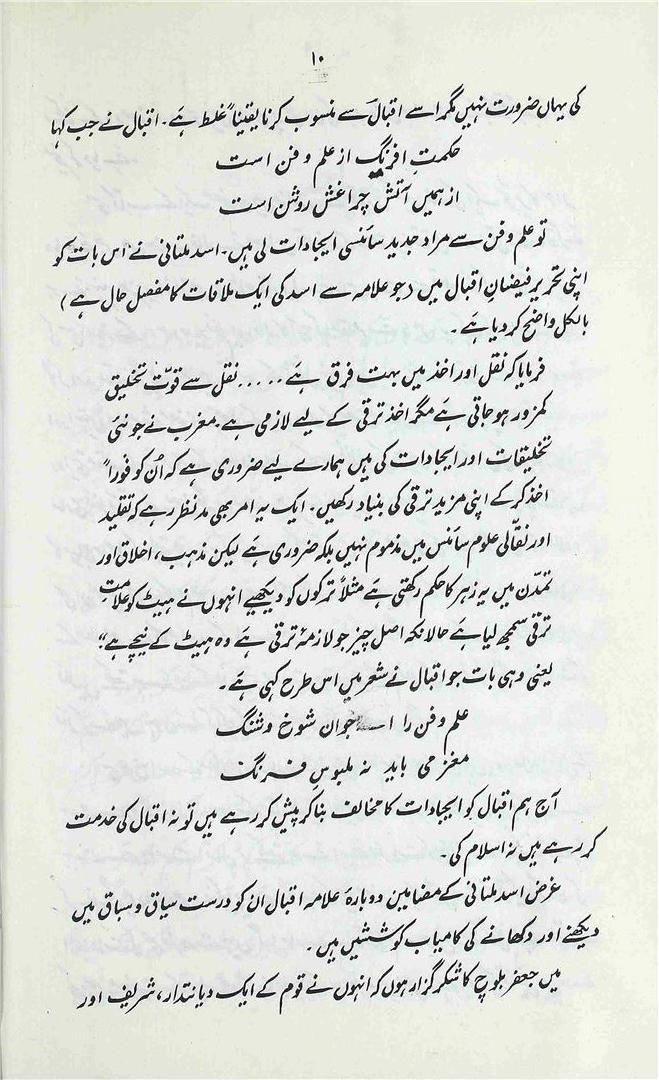 ۱۰
کی یہاں ضرورت نہیں مگر اسے اقبالؒ سے منسوب کرنا یقیناً غلط ہے۔ اقبال نے جب کہا
حکمتِ افرنگ از علم و فن است
از ہمیں آتش چراغش روشن است
تو علم و فن سے مراد جدید سائنسی ایجادات لی ہیں۔ اسد ملتانی نے اس بات کو
اپنی تحریر فیضانِ اقبال میں (جو علامہ سے اسد کی ایک ملاقات کا مفصل حال ہے)
بالکل واضح کر دیا ہے۔
فرمایا کہ نقل اور اخذ میں بہت فرق ہے ..... نقل سے قوّت تخلیق
کمزور ہو جاتی ہے مگر اخذ ترقی کے لیے لازمی ہے۔ مغرب نے جو نئی
تخلیقات اور ایجادات کی ہیں ہمارے لیے ضروری ہے کہ اُن کو فوراً
اخذ کر کے اپنی مزید ترقی کی بنیاد رکھیں۔ ایک یہ امر بھی مدنظر رہے کہ تقلید
اور نقّالی علوم سائنس میں مذموم نہیں بلکہ ضروری ہے لیکن مذہب، اخلاق اور
تمدّن میں یہ زہر کا حکم رکھتی ہے مثلاً ترکوں کو دیکھیے انہوں نے ہیٹ کو علامتِ
ترقی سمجھ لیا ہے حالانکہ اصل چیز جو لازمۂ ترقی ہے وہ ہیٹ کے نیچے ہے"
یعنی وہی بات جو اقبال نے شعر میں اس طرح کہی ہے۔
علم و فن را اے جوان شوخ و شنگ
مغز می باید نہ ملبوسِ فرنگ
آج ہم اقبال کو ایجادات کا مخالف بنا کر پیش کر رہے ہیں تو نہ اقبال کی خدمت
کر رہے ہیں نہ اسلام کی۔
غرض اسد ملتانی کے مضامین دوبارۂ علامہ اقبال ان کو درست سیاق و سباق میں
دیکھنے اور دکھانے کی کامیاب کوششیں ہیں۔
میں جعفر بلوچ کا شکر گزار ہوں کہ انہوں نے قوم کے ایک دیانتدار، شریف اور